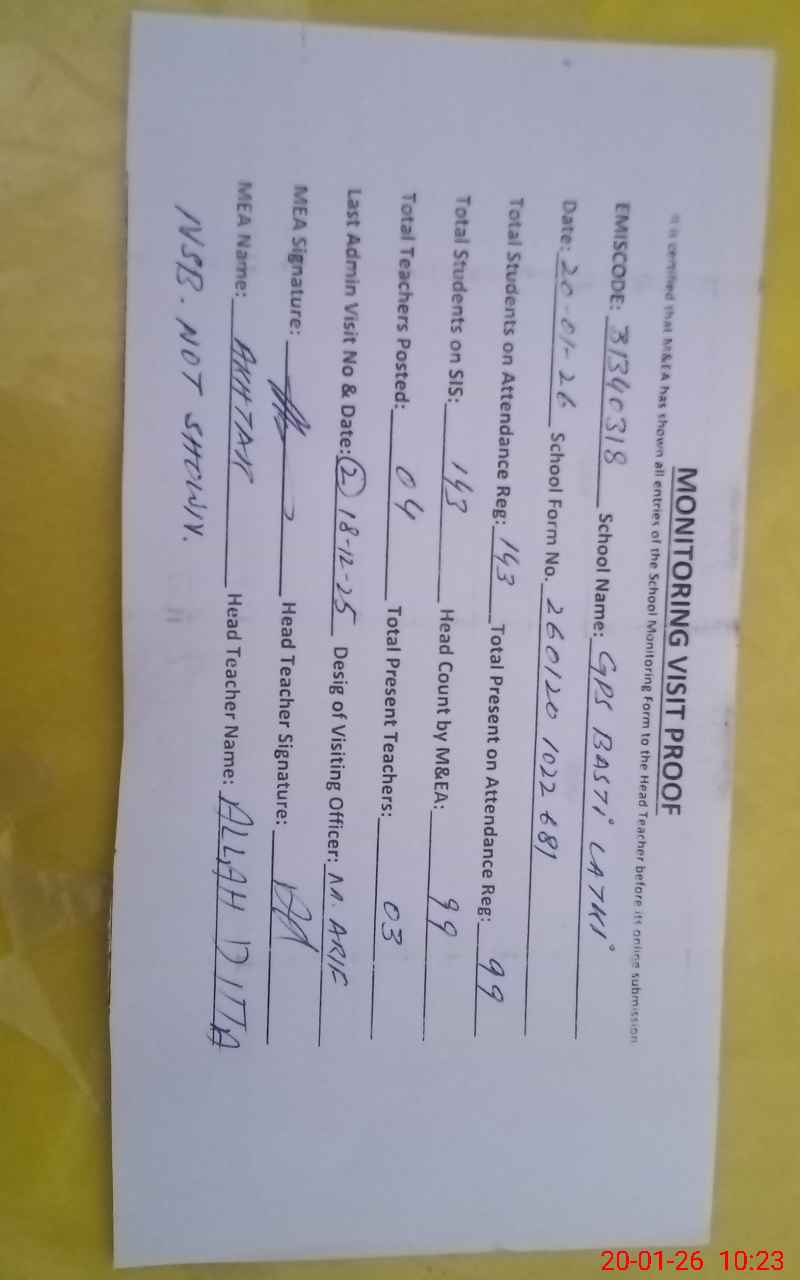 MONITORING VISIT PROOF
It is certified that M&EA has shown all entries of the School Monitoring Form to the Head Teacher before its online submission
EMISCODE: 31340318 School Name: GPS BASTI LATKI
Date: 20-01-26 School Form No. 260120 1022 681
Total Students on Attendance Reg: 143 Total Present on Attendance Reg: 99
Total Students on SIS: 143 Head Count by M&EA: 99
Total Teachers Posted: 04 Total Present Teachers: 03
Last Admin Visit No & Date: (2) 18-12-25 Desig of Visiting Officer: M. ARIF
MEA Signature: Head Teacher Signature:
MEA Name: AKHTAR Head Teacher Name: ALLAH DITTA
NSB. NOT SHOWN.
20-01-26 10:23